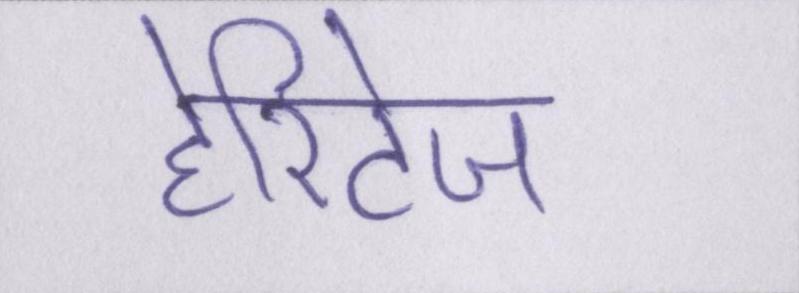 हेरिटेज